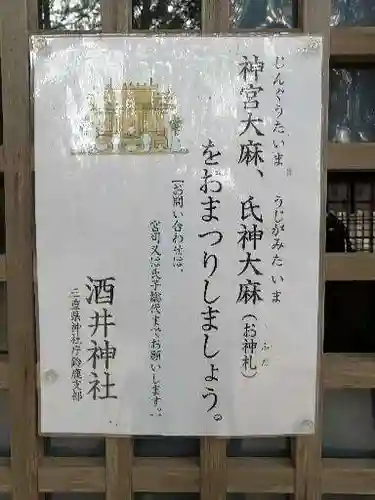 じんぐうたいま
うじがみたいま
神宮大麻、氏神大麻(お神札)
ふだ
をおまつりしましょう。
お問い合わせは、
宮司又は氏子総代までお願いします。
酒井神社
三重県神社庁鈴鹿支部